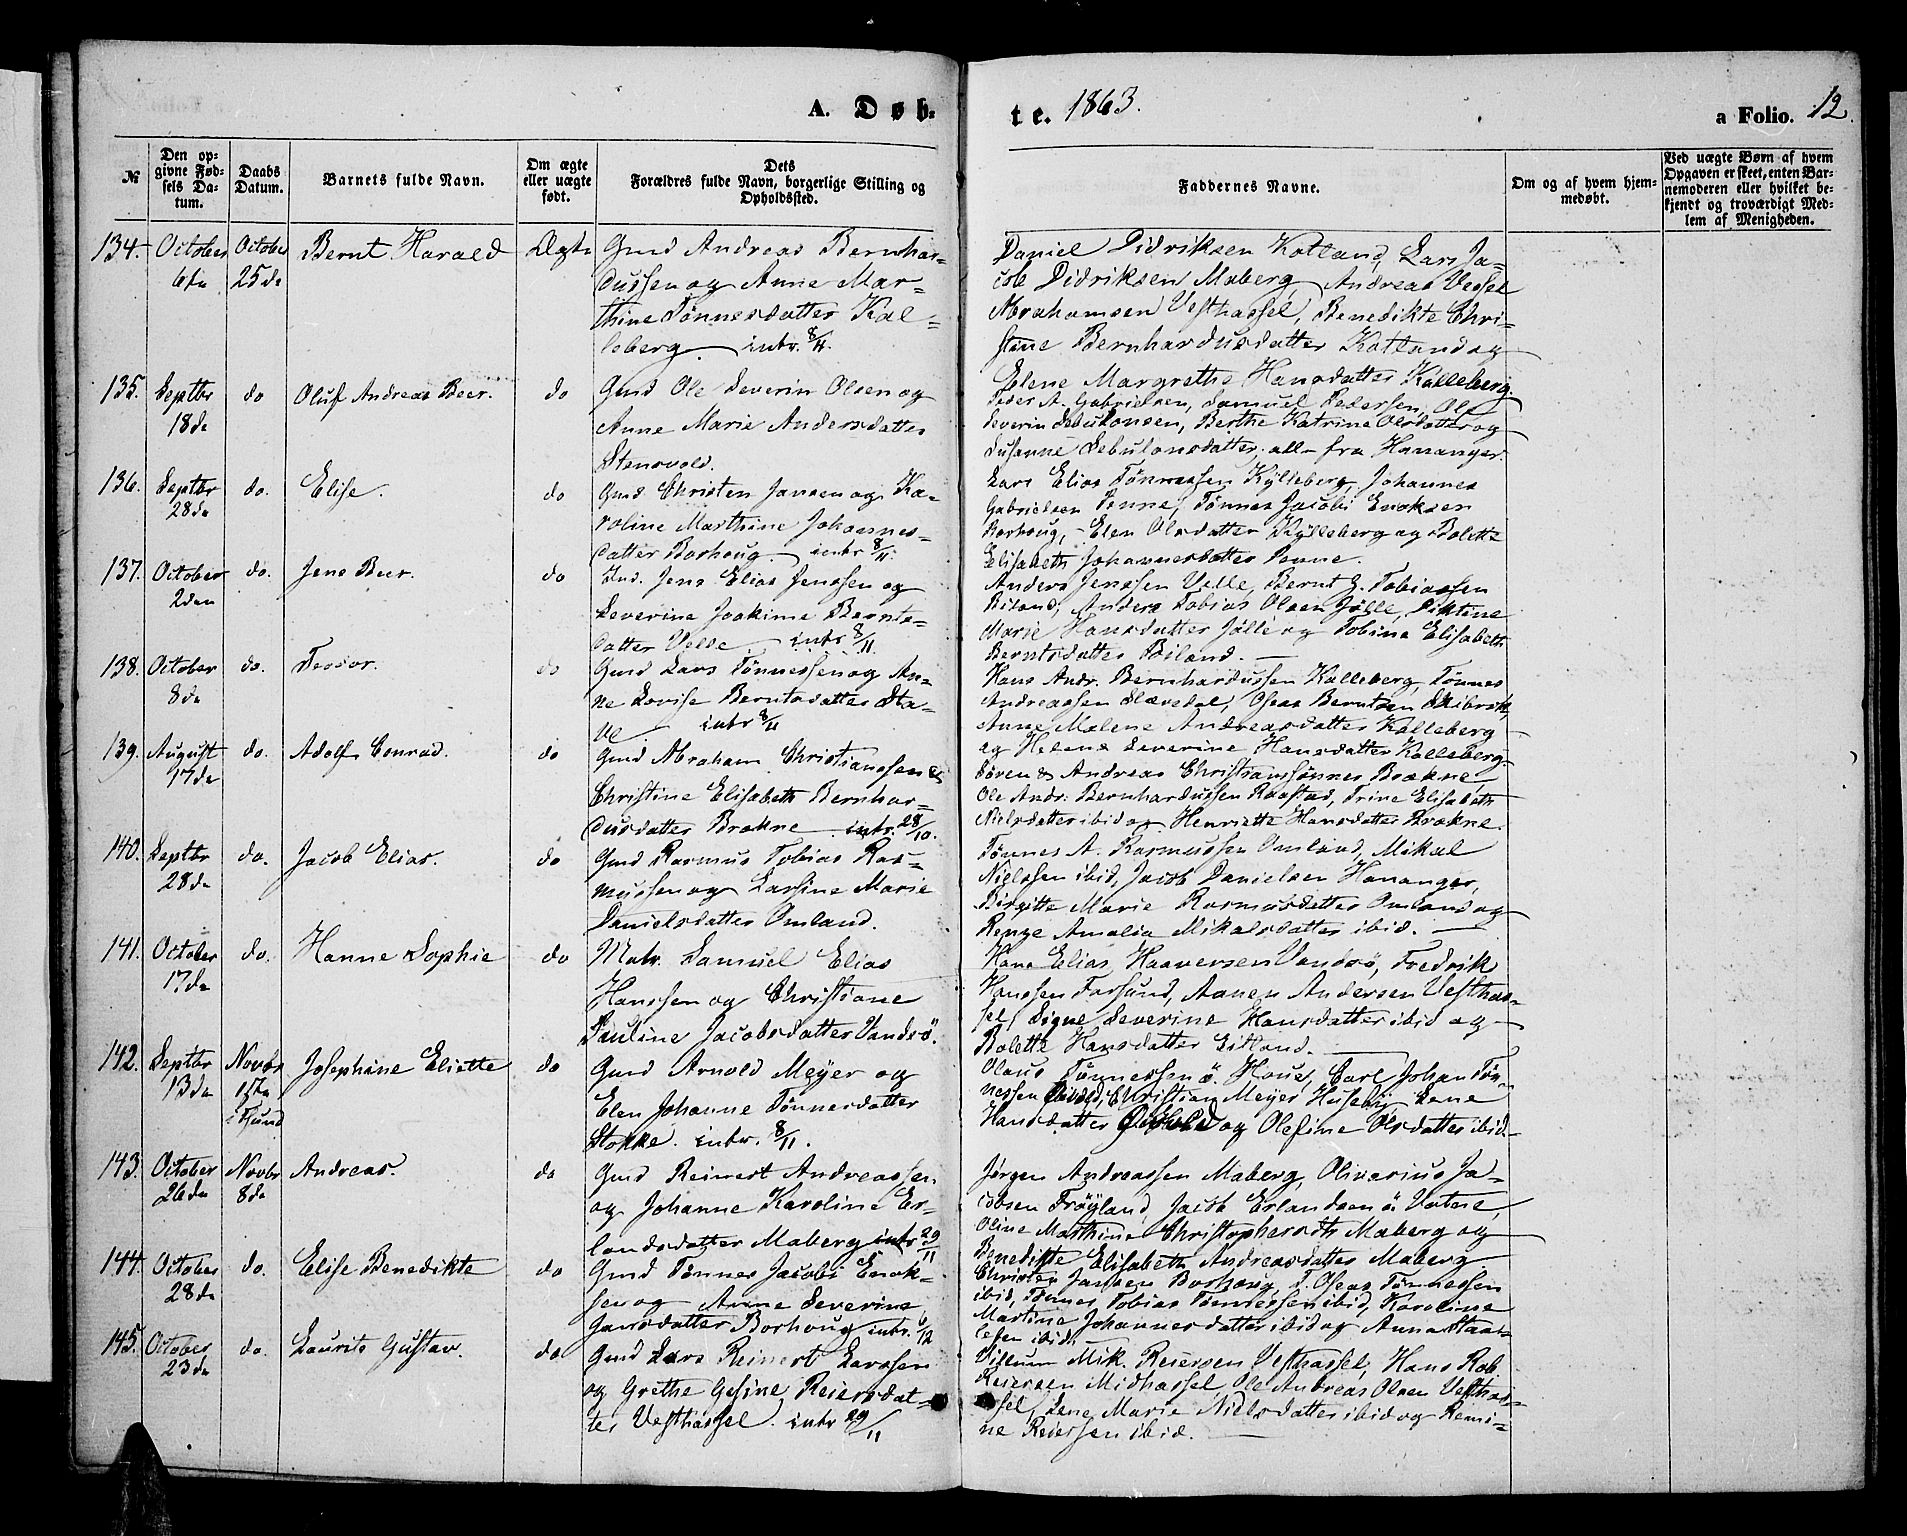 A. Døb-
te. 1863.
a Folio. 12.
№
Den op-
givne Fød-
sels Da-
tum.
Daabs
Datum.
Barnets fulde Navn.
Om ægte
eller uægte
født.
Dets
Forældres fulde Navn, borgerlige Stilling og
Opholdssted.
Faddernes Navne.
Om og af hvem hjem-
medøbt.
Ved uægte Børn af hvem
Opgaven er skeet, enten Bar-
nemoderen eller hvilket be-
kjendt og troværdigt Med-
lem af Menigheden.
134. October 6te October 25de Bernt Harald Ægte
Gmd Andreas Bernhar-
dussen og Anne Mar-
thine Tønnesdatter Kal-
leberg. intr. 8/11.
Daniel Didriksen Kotland, Lars Ja-
cob Didriksen Maberg, Andreas Vessel
Abrahamsen Vesthassel, Benedikte Chri-
stine Bernhardusdatter Kotland og
Elene Margrethe Hansdatter Kalleberg
135. Septbr 18de do Oluf Andreas Beer. do
Gmd Ole Severin Olsen og
Anne Marie Andersdatter
Stensvold.
Peder A. Gabrielsen, Samuel Pedersen, Ole
Severin Sebulonsen, Berthe Katrine Olsdatter og
Susanne Sebulonsdatter. alle fra Hananger.
136. Septbr 28de do. Elise. do
Gmd. Christen Jansen og Ka-
roline Marthine Johannes-
datter Borhoug. intr 8/11.
Lars Elias Tønnessen Kylleberg, Johannes
Gabrielsen Penne, Tønnes Jacobi Enoksen
Borhoug, Elen Olsdatter Kylleberg og Bolette
Elisabeth Johannesdatter Penne.
137. October 2den do. Jens Beer. do
Ind. Jens Elias Jenssen og
Severine Joakime Bernts-
datter Velle. intr 8/11
Anders Jenssen Velle, Bernt G. Tobiassen
Biland, Anders Tobias Olsen Jølle, Diktine
Marie Hansdatter Jølle og Tobine Elisabeth
Berntsdatter Biland.
138. October 8de do. Teodor. do
Gmd Lars Tønnessen og An-
ne Lovise Berntsdatter Sta-
ve intr 8/11
Hans Andr. Bernhardussen Kalleberg, Tønnes
Andreassen Slævdal, Oseas Berntsen Skibrok,
Anne Malene Andreasdatter Kalleberg
og Helene Severine Hansdatter Kalleberg.
139. August 17de do. Adolf Conrad. do
Gmd Abraham Christianssen &
Christine Elisabeth Bernhar-
dusdatter Brekne. intr. 28/10.
Søren & Andreas Christianssønner Brekne,
Ole Andr. Bernhardussen Raastad, Trine Elisabeth
Nielsdatter ibid og Henriette Hansdatter Brekne.
140. Septbr 28de do. Jacob Elias. do
Gmd Rasmus Tobias Ras-
mussen og Lassine Marie
Danielsdatter Omland.
Tønnes A. Rasmussen Omland, Mikal
Nielssen ibid, Jacob Danielsen Hananger,
Birgitte Marie Rasmusdatter Omland og
Amalia Mikalsdatter ibid.
141. October 17de do. Hanne Sophie do
Matr. Samuel Elias
Hanssen og Christiane
Pauline Jacobsdatter Vandsö.
Hans Elias Haaversen Vandsö, Fredrik
Hanssen Farsund, Aanen Andersen Vesthas-
sel, Signe Severine Hansdatter ibid og
Bolette Hansdatter Eitland.
142. Septbr 13de Novbr 1ste i Fsund Josephine Eliette do
Gmd Arnold Meyer og
Elen Johanne Tönnesdatter
Stokke. intr. 8/11.
Olaus Tönnessen ö. Haue, Carl Johan Tön-
nessen, Christian Meyer Huseby, Lene
Hansdatter og Olefine Olsdatter ibid.
143. October 26de Novbr 8de Andreas. do
Gmd Reinert Andreassen
og Johanne Karoline Er-
landsdatter Maberg intr 29/11
Jørgen Andreassen Maberg, Oliverius Ja-
cobsen Fröyland, Jacob Erlandsen ö. Vatne,
Oline Marthine Christophersdtr Maberg og
Benedikte Elisabeth Andreasdatter Maberg.
144. October 28de do. Elise Benedikte do
Gmd Tönnes Jacobi Enok-
sen og Anne Severine
Jansdatter Borhoug intr. 6/12
Christen Jansen Borhoug, T. Oseas Tönnessen
ibid, Tönnes Tobias Tönnessen ibid, Karoline
Martine Johannesdatter ibid og Anna Staal-
lesen ibid.
145. October 23de do. Laurits Gustav. do
Gmd Lars Reinert Larssen
og Grethe Gesine Reiersdat-
ter Vesthassel. intr 29/11
Villum Mik. Reiersen Vesthassel, Hans Rob
Reiersen Midhassel, Ole Andreas Olsen Vesthas-
sel, Lene Marie Nielsdatter ibid og Remi-
ne Reiersen ibid.